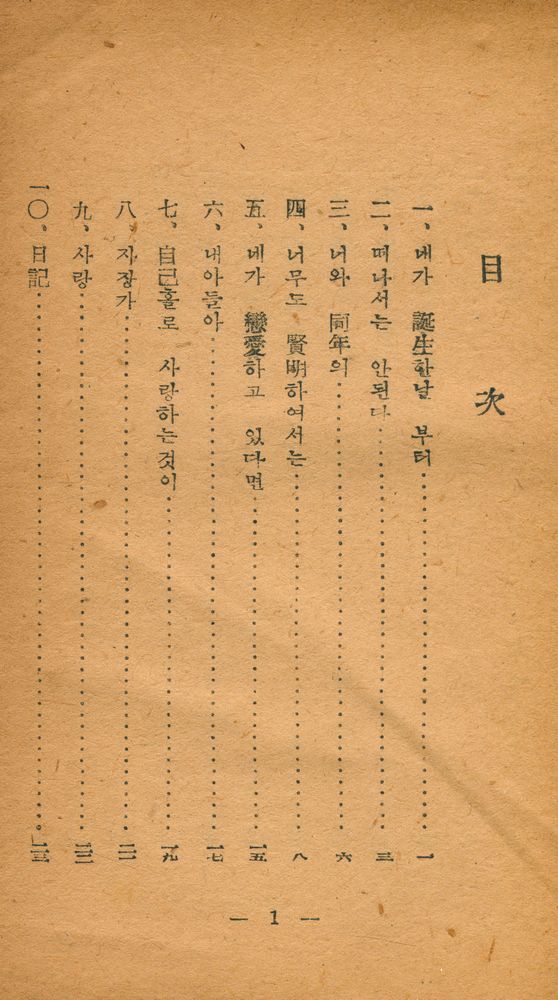 目次
一、네가 誕生한날 부터……一
二、떠나서는 안된다……三
三、너와 同年의……六
四、너무도 賢明하여서는……八
五、네가 戀愛하고 있다면……一五
六、내아들아……一七
七、自己홀로 사랑하는것이……一九
八、자장가……二一
九、사랑……二二
一〇、日記……二三
— 1 —